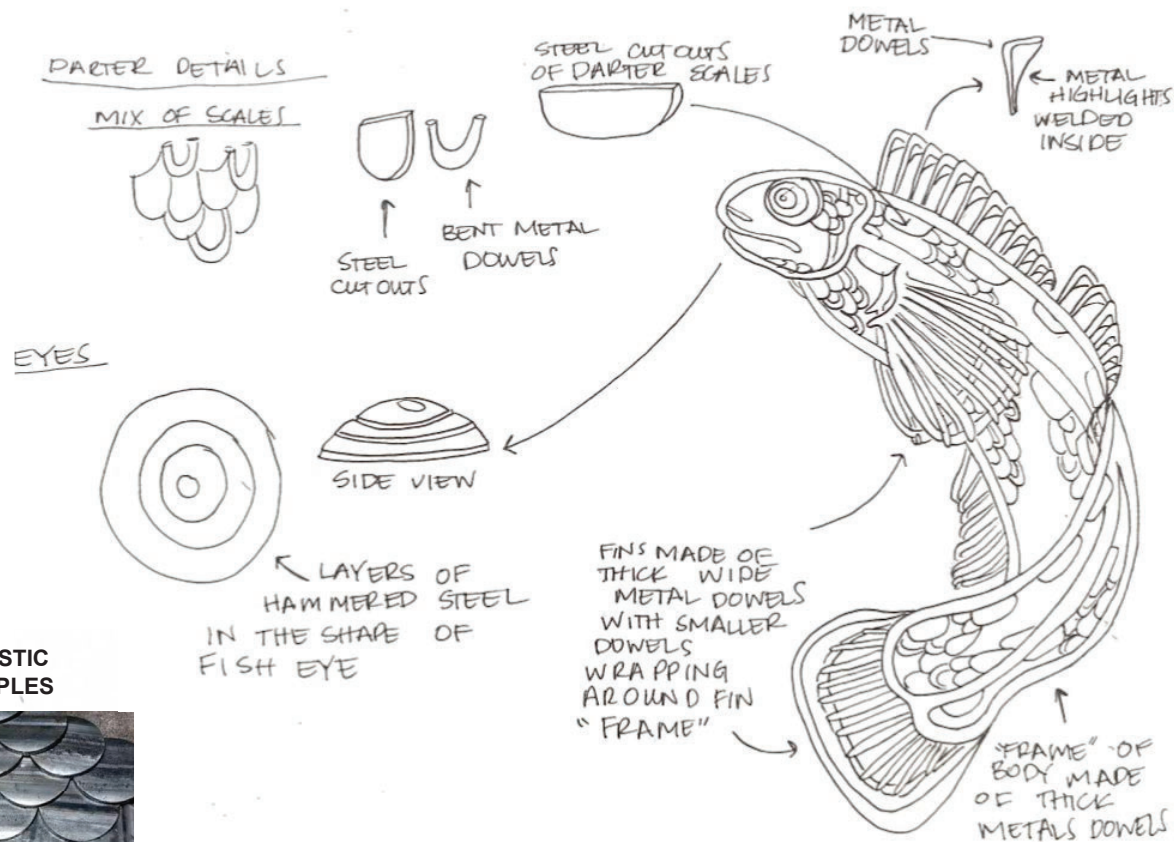 DARTER DETAILS
MIX OF SCALES
STEEL
CUT OUTS
BENT METAL
DOWELS
STEEL CUT OUTS
OF DARTER SCALES
METAL
DOWELS
METAL
HIGHLIGHTS
WELDED
INSIDE
EYES
SIDE VIEW
LAYERS OF
HAMMERED STEEL
IN THE SHAPE OF
FISH EYE
FINS MADE OF
THICK WIDE
METAL DOWELS
WITH SMALLER
DOWELS
WRAPPING
AROUND FIN
"FRAME"
"FRAME" OF
BODY MADE
OF THICK
METALS DOWELS
STIC
PLES